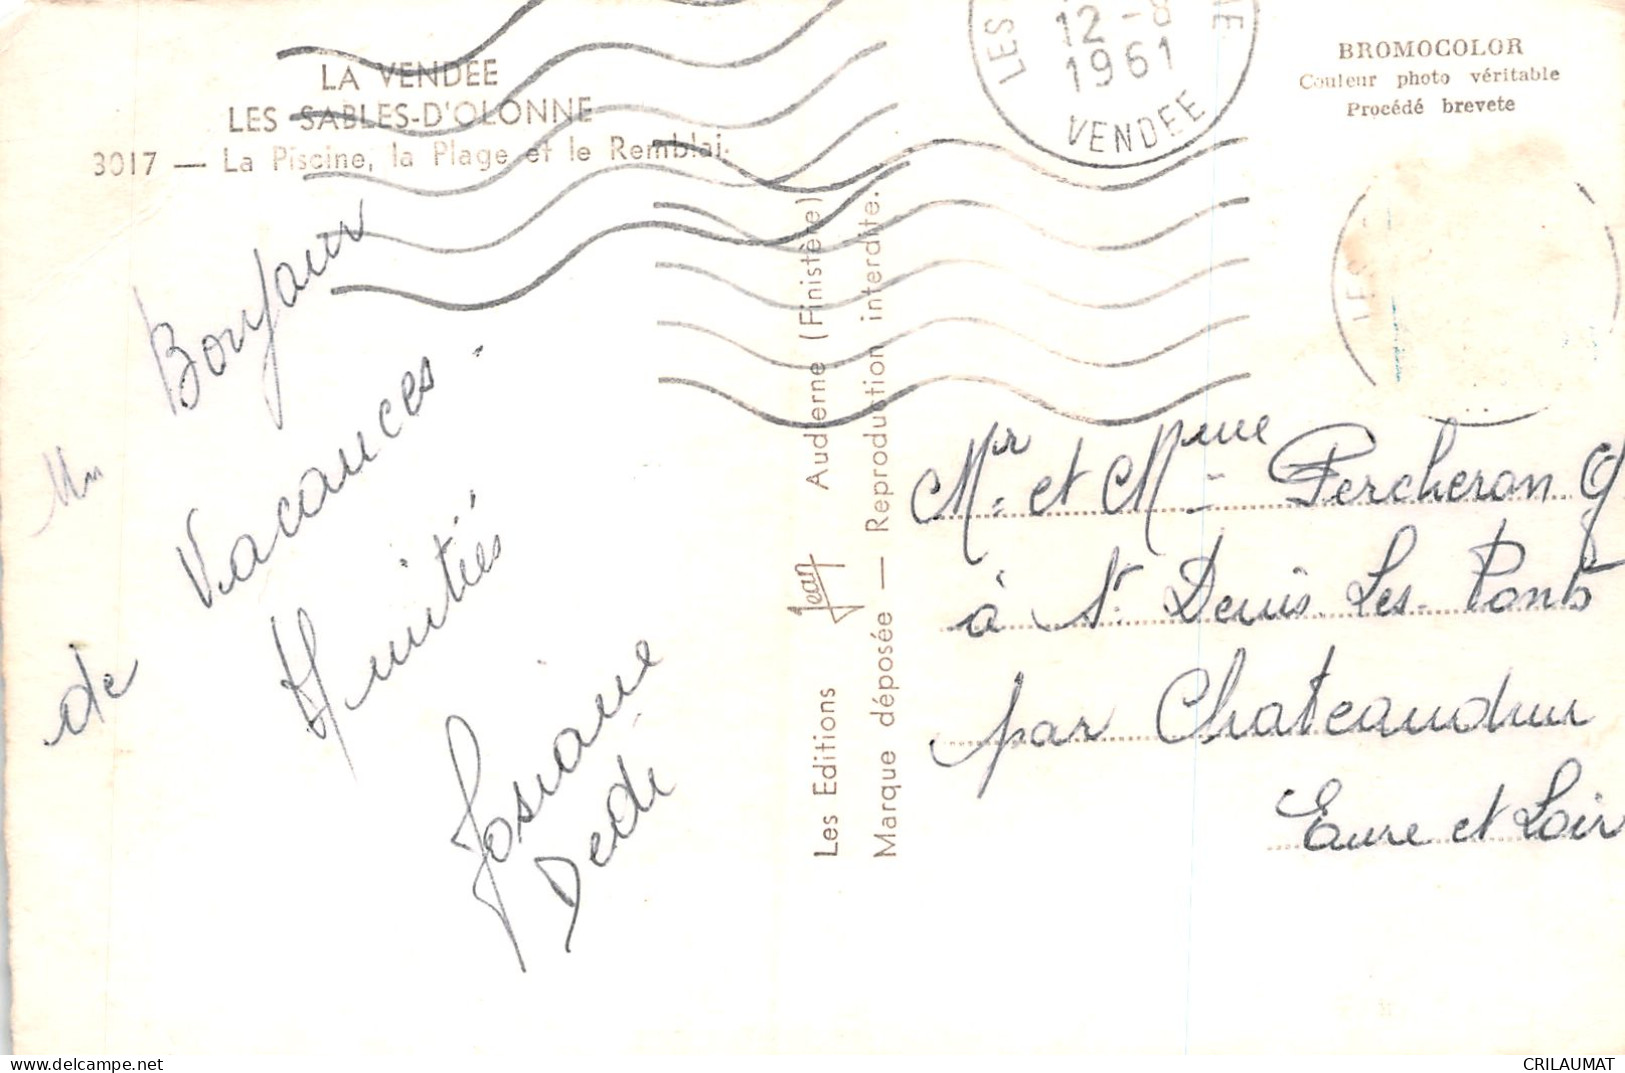 LA VENDÉE
LES SABLES-D'OLONNE
3017 — La Piscine, la Plage et le Remblai.
LES
12 -8
1961
VENDEE
BROMOCOLOR
Couleur photo véritable
Procédé brevete
LES
Un Bonjour
de Vacances.
Amitiés
Josiane
Dedi
Les Editions Jean Audierne (Finistère)
Marque déposée — Reproduction interdite.
Mr. et Mme Percheron G
à St Denis Les Ponts
par Chateaudun
Eure et Loir
CRILAUMAT